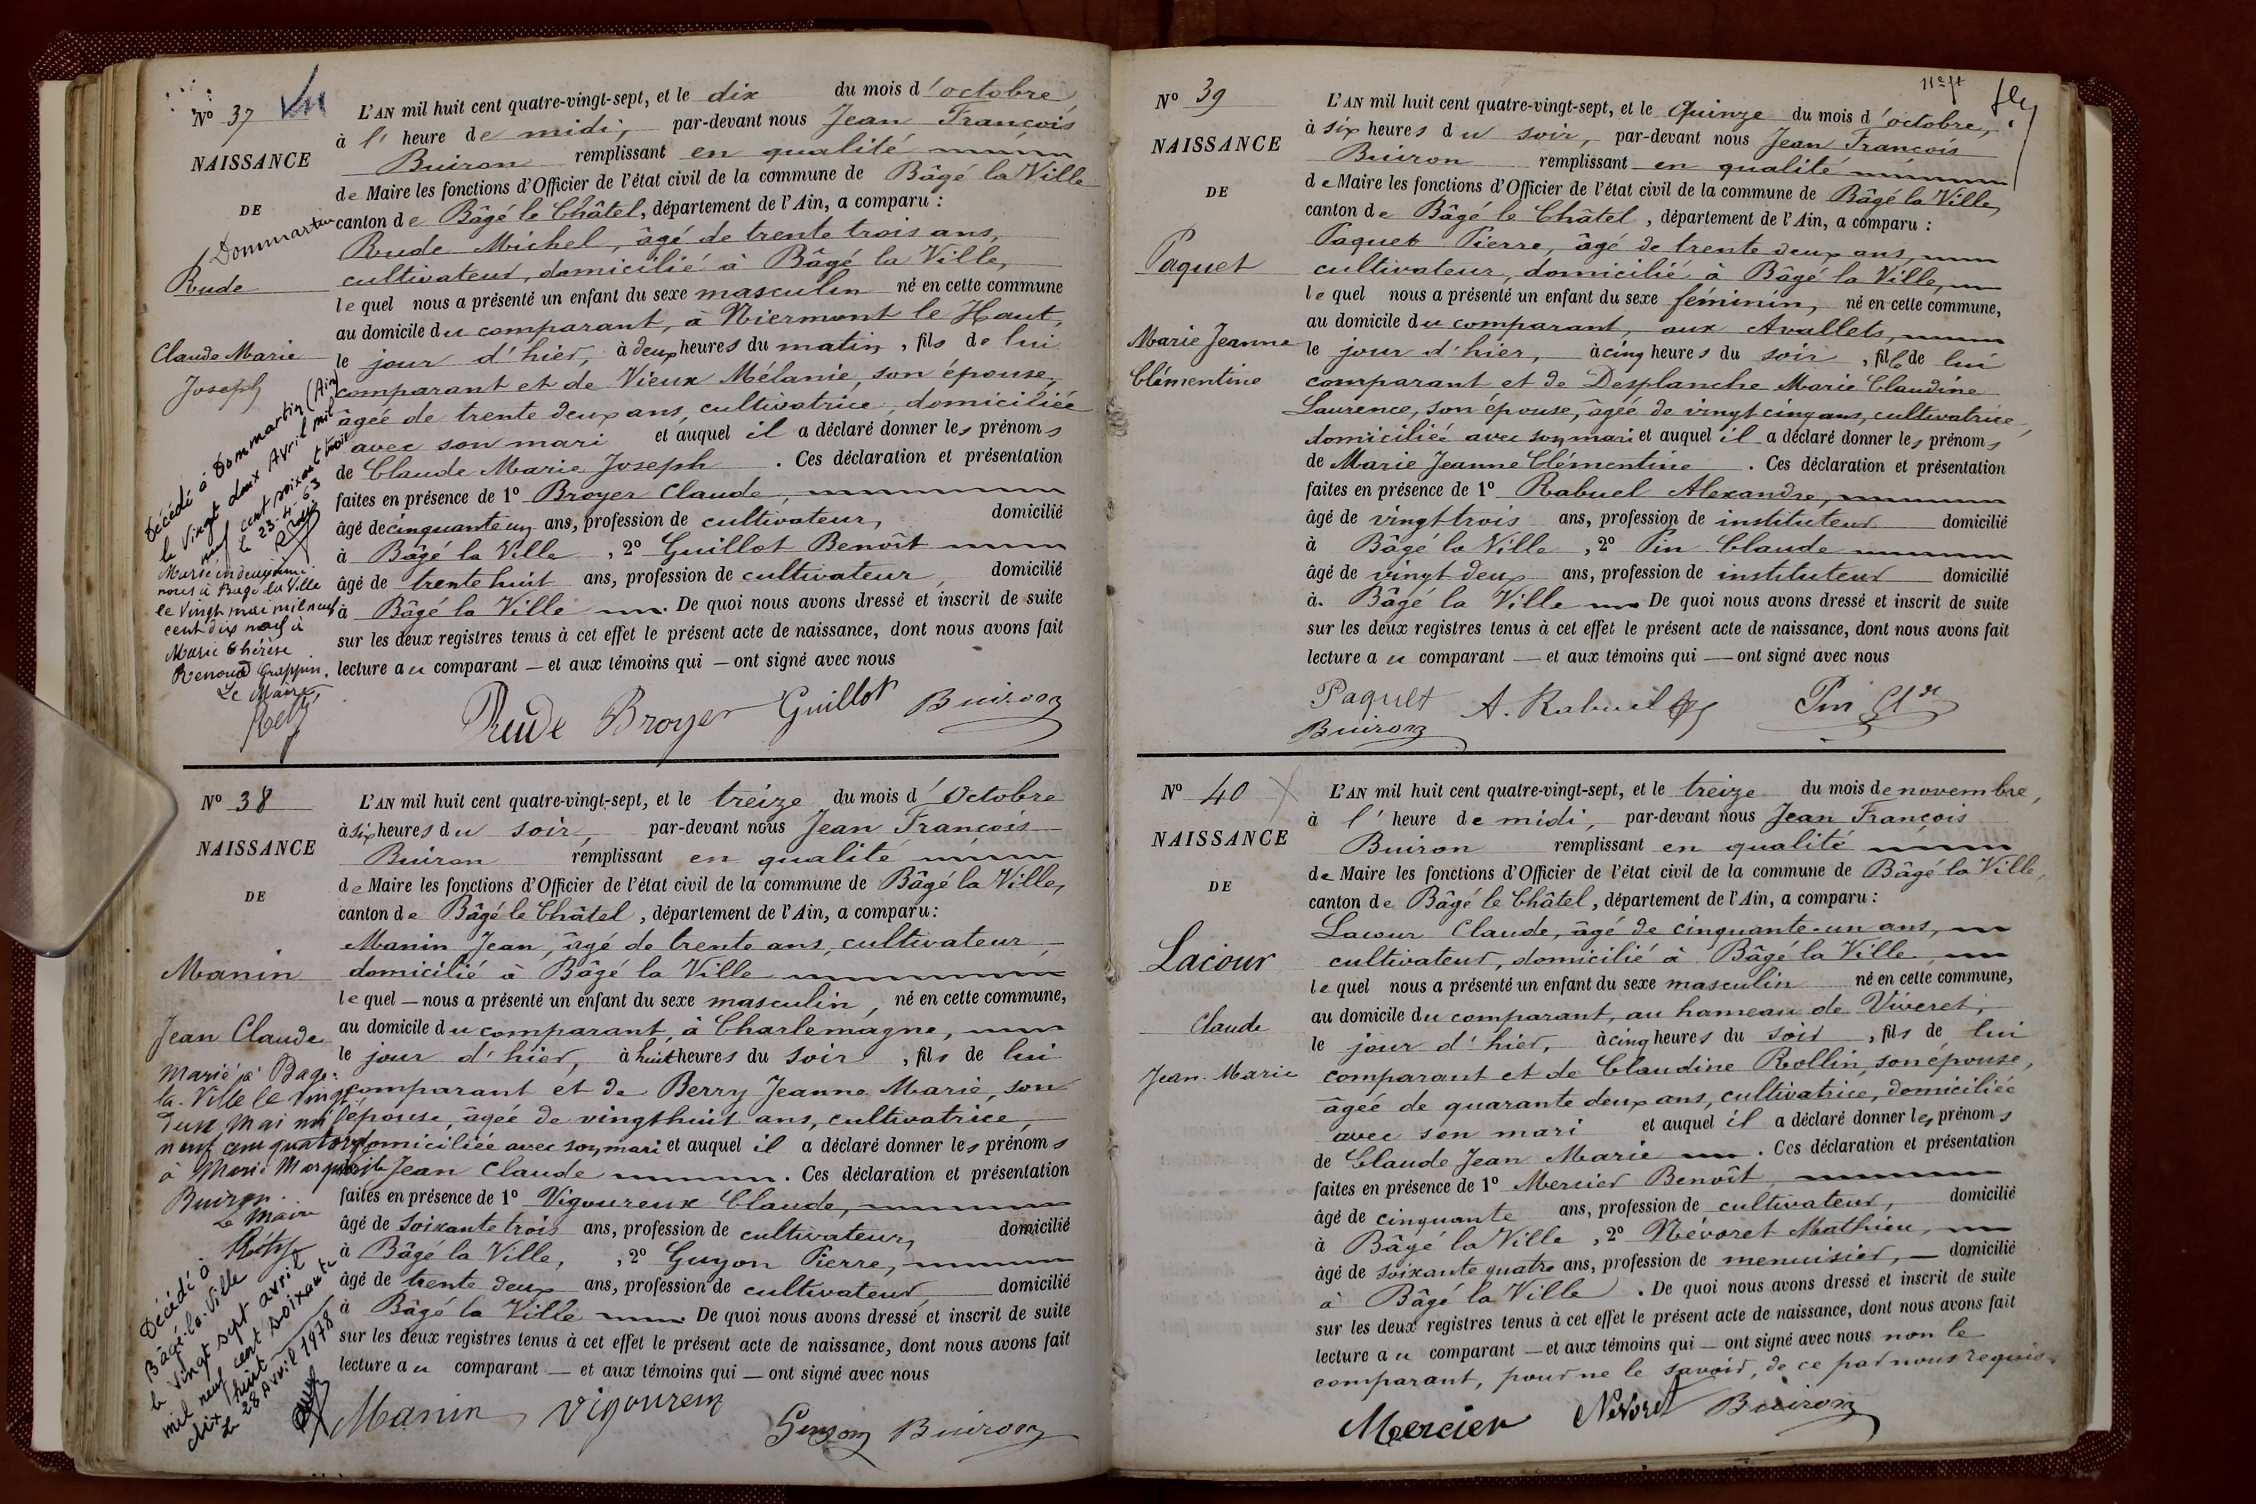 Nº 37 Vu
NAISSANCE
DE
Dommartin
Rude
Claude Marie
Joseph
Décédé à Dommartin (Ain)
le vingt deux Avril mil
neuf cent soixante trois
le 23-4-63
Marié en deuxièmes
noces à Bâgé la Ville
le vingt mai mil neuf
cent dix neuf à
Marie Thérèse
Renoud Grappin.
Le Maire
L'AN mil huit cent quatre-vingt-sept, et le dix du mois d'octobre
à l' heure de midi, par-devant nous Jean François
Buiron remplissant en qualité
de Maire les fonctions d'Officier de l'état civil de la commune de Bâgé la Ville
canton de Bâgé le Châtel, département de l'Ain, a comparu :
Rude Michel, âgé de trente trois ans,
cultivateur, domicilié à Bâgé la Ville,
lequel nous a présenté un enfant du sexe masculin né en cette commune
au domicile du comparant, à Niermont le Haut,
le jour d'hier, à deux heures du matin, fils de lui
comparant et de Vieux Mélanie, son épouse,
âgée de trente deux ans, cultivatrice, domiciliée
avec son mari et auquel il a déclaré donner les prénoms
de Claude Marie Joseph. Ces déclaration et présentation
faites en présence de 1º Broyer Claude,
âgé de cinquante un ans, profession de cultivateur, domicilié
à Bâgé la Ville, 2º Guillot Benoît
âgé de trente huit ans, profession de cultivateur, domicilié
à Bâgé la Ville. De quoi nous avons dressé et inscrit de suite
sur les deux registres tenus à cet effet le présent acte de naissance, dont nous avons fait
lecture au comparant — et aux témoins qui — ont signé avec nous
Rude Broyer Guillot Buiron
Nº 38
NAISSANCE
DE
Manin
Jean Claude
Marié à Bâgé-
la-Ville le vingt
deux Mai mil
neuf cent quatorze
à Marie Marguerite
Buiron.
Le Maire
Décédé à
Bâgé-la-Ville
le vingt sept avril
mil neuf cent soixante
dix huit
Le 28 Avril 1978
L'AN mil huit cent quatre-vingt-sept, et le treize du mois d'Octobre
à six heures du soir, par-devant nous Jean François
Buiron remplissant en qualité
de Maire les fonctions d'Officier de l'état civil de la commune de Bâgé la Ville,
canton de Bâgé le Châtel, département de l'Ain, a comparu :
Manin Jean, âgé de trente ans, cultivateur,
domicilié à Bâgé la Ville
lequel — nous a présenté un enfant du sexe masculin, né en cette commune,
au domicile du comparant, à Charlemagne,
le jour d'hier, à huit heures du soir, fils de lui
comparant et de Berry Jeanne Marie, son
épouse, âgée de vingt huit ans, cultivatrice,
domiciliée avec son mari et auquel il a déclaré donner les prénoms
de Jean Claude. Ces déclaration et présentation
faites en présence de 1º Vigoureux Claude,
âgé de soixante trois ans, profession de cultivateur, domicilié
à Bâgé la Ville, 2º Guyon Pierre,
âgé de trente deux ans, profession de cultivateur, domicilié
à Bâgé la Ville. De quoi nous avons dressé et inscrit de suite
sur les deux registres tenus à cet effet le présent acte de naissance, dont nous avons fait
lecture au comparant — et aux témoins qui — ont signé avec nous
Manin Vigoureux
Guyon Buiron
Nº 39
NAISSANCE
DE
Paquet
Marie Jeanne
Clémentine
L'AN mil huit cent quatre-vingt-sept, et le Quinze du mois d'octobre,
à six heures du soir, par-devant nous Jean François
Buiron remplissant en qualité
de Maire les fonctions d'Officier de l'état civil de la commune de Bâgé la Ville,
canton de Bâgé le Châtel, département de l'Ain, a comparu :
Paquet Pierre, âgé de trente deux ans,
cultivateur, domicilié à Bâgé la Ville,
lequel nous a présenté un enfant du sexe féminin, né en cette commune,
au domicile du comparant, aux Avallets,
le jour d'hier, à cinq heures du soir, fille de lui
comparant et de Desplanche Marie Claudine
Laurence, son épouse, âgée de vingt cinq ans, cultivatrice,
domiciliée avec son mari et auquel il a déclaré donner les prénoms
de Marie Jeanne Clémentine. Ces déclaration et présentation
faites en présence de 1º Rabuel Alexandre,
âgé de vingt trois ans, profession de instituteur domicilié
à Bâgé la Ville, 2º Pin Claude
âgé de vingt deux ans, profession de instituteur domicilié
à. Bâgé la Ville De quoi nous avons dressé et inscrit de suite
sur les deux registres tenus à cet effet le présent acte de naissance, dont nous avons fait
lecture au comparant — et aux témoins qui — ont signé avec nous
Paquet A. Rabuel Pin Cl
Buiron
Nº 40
NAISSANCE
DE
Lacour
Claude
Jean-Marie
L'AN mil huit cent quatre-vingt-sept, et le treize du mois de novembre,
à l' heure de midi, par-devant nous Jean François
Buiron remplissant en qualité
de Maire les fonctions d'Officier de l'état civil de la commune de Bâgé la Ville,
canton de Bâgé le Châtel, département de l'Ain, a comparu :
Lacour Claude, âgé de cinquante-un ans,
cultivateur, domicilié à Bâgé la Ville
lequel nous a présenté un enfant du sexe masculin né en cette commune,
au domicile du comparant, au hameau de Viveret,
le jour d'hier, à cinq heures du soir, fils de lui
comparant et de Claudine Rollin, son épouse,
âgée de quarante deux ans, cultivatrice, domiciliée
avec son mari et auquel il a déclaré donner les prénoms
de Claude Jean Marie. Ces déclaration et présentation
faites en présence de 1º Mercier Benoît,
âgé de cinquante ans, profession de cultivateur, domicilié
à Bâgé la Ville, 2º Névoret Mathieu,
âgé de soixante quatre ans, profession de menuisier, — domicilié
à Bâgé la Ville. De quoi nous avons dressé et inscrit de suite
sur les deux registres tenus à cet effet le présent acte de naissance, dont nous avons fait
lecture au comparant — et aux témoins qui — ont signé avec nous non le
comparant, pour ne le savoir, de ce par nous requis.
Mercier Névoret Buiron